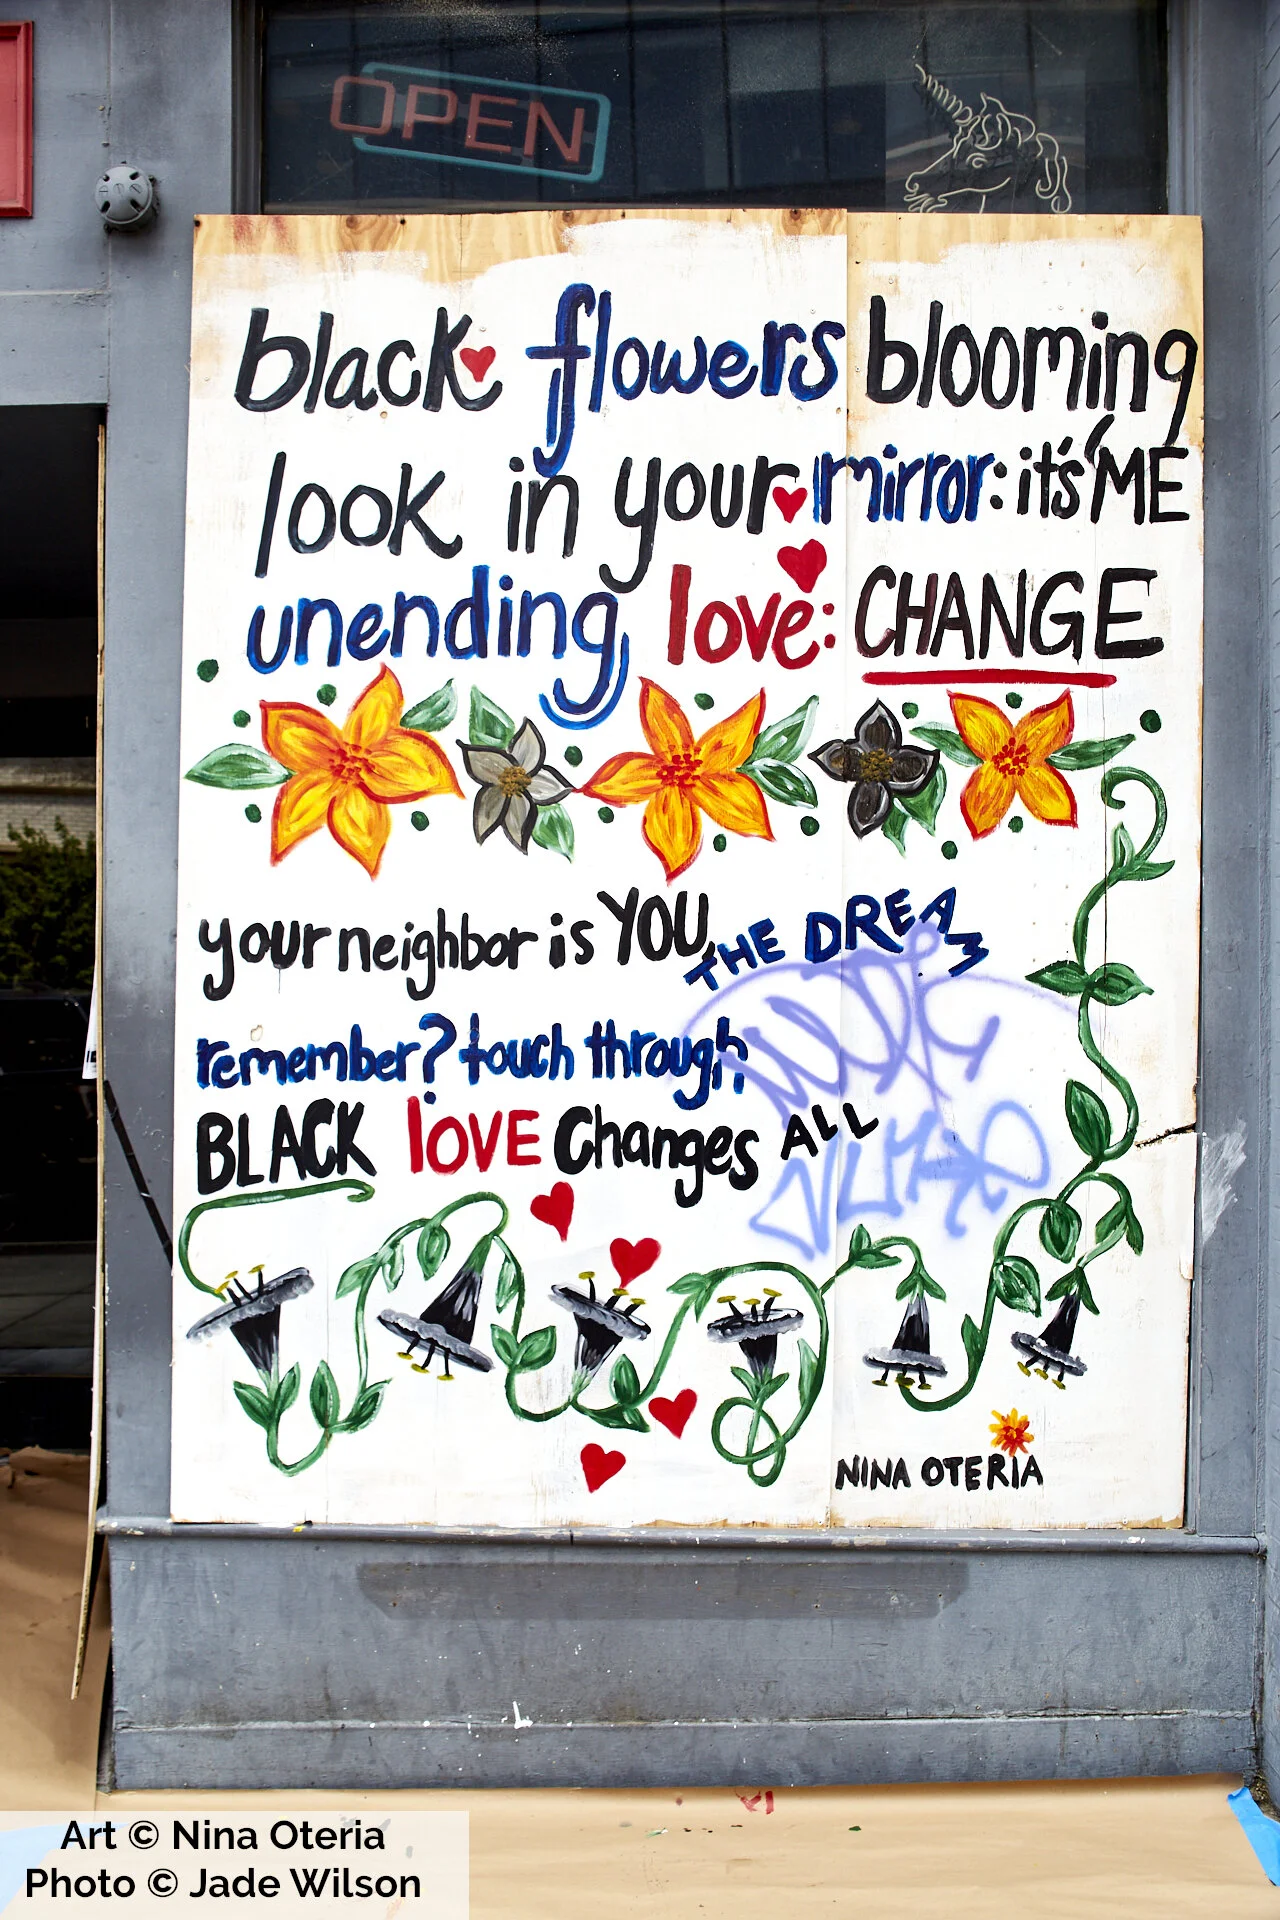 OPEN
black flowers blooming
look in your mirror: it's ME
unending love: CHANGE
your neighbor is YOU, THE DREAM
remember? touch through
BLACK lOVE Changes ALL
NINA OTERIA
Art © Nina Oteria
Photo © Jade Wilson